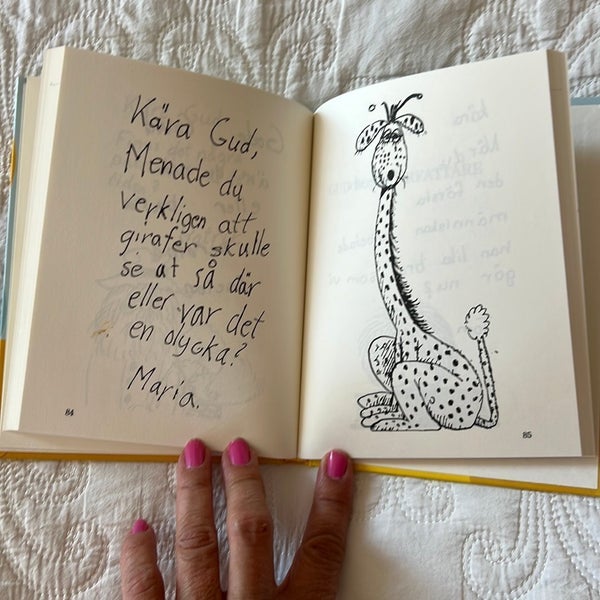 Kära Gud,
Menade du
verkligen att
girafer skulle
se at så där
eller var det
en olycka?
Maria.
84
85